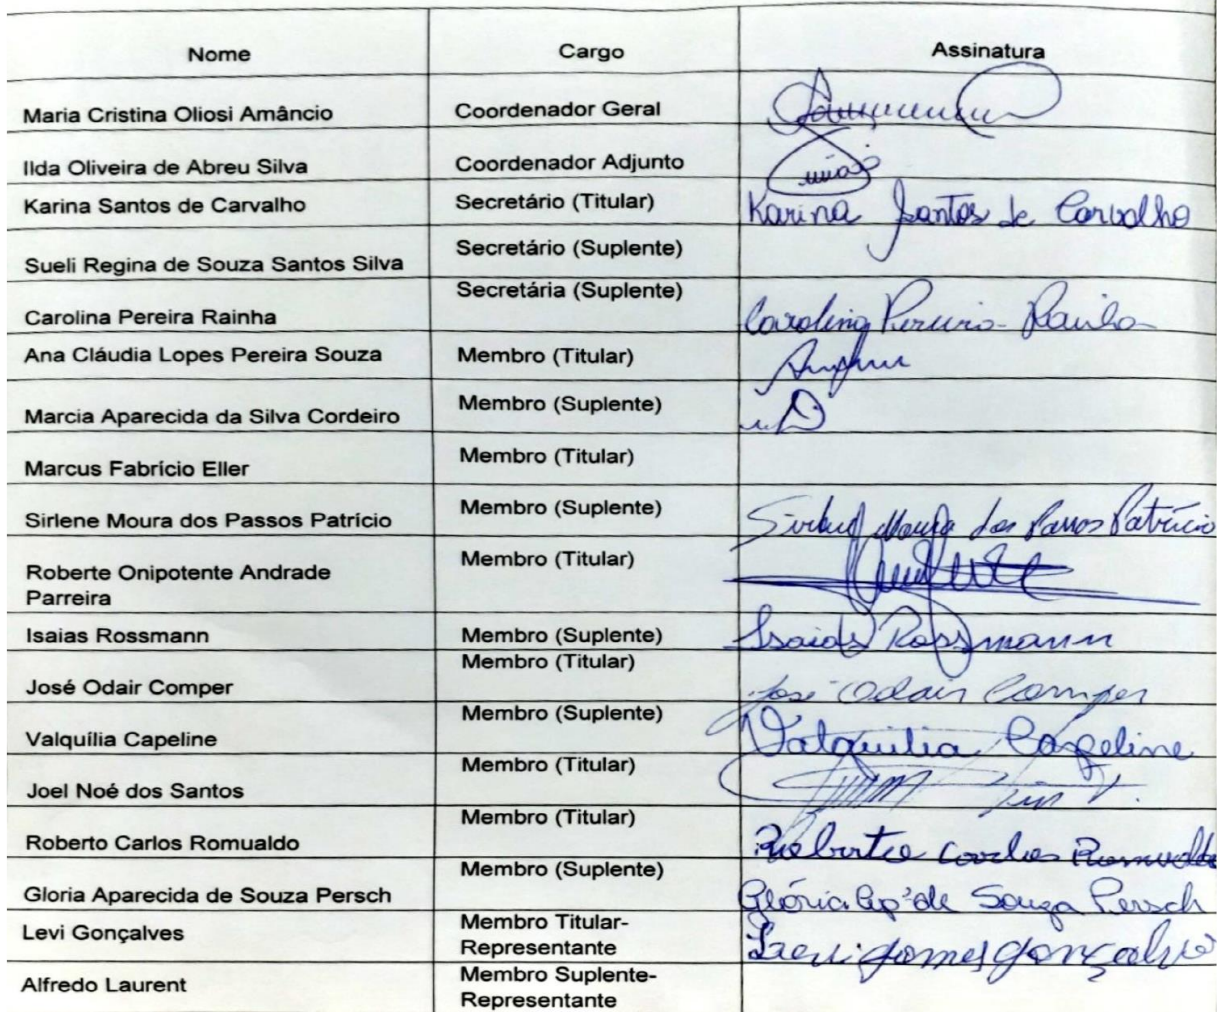 Nome Cargo Assinatura
Maria Cristina Oliosi Amâncio Coordenador Geral
Ilda Oliveira de Abreu Silva Coordenador Adjunto
Karina Santos de Carvalho Secretário (Titular) Karina Santos de Carvalho
Sueli Regina de Souza Santos Silva Secretário (Suplente)
Carolina Pereira Rainha Secretária (Suplente) Carolina Pereira Rainha
Ana Cláudia Lopes Pereira Souza Membro (Titular)
Marcia Aparecida da Silva Cordeiro Membro (Suplente)
Marcus Fabrício Eller Membro (Titular)
Sirlene Moura dos Passos Patrício Membro (Suplente) Sirlene Moura dos Passos Patrício
Roberte Onipotente Andrade Membro (Titular)
Parreira
Isaias Rossmann Membro (Suplente) Isaias Rossmann
José Odair Comper Membro (Titular) José Odair Comper
Valquília Capeline Membro (Suplente) Valquilia Capeline
Joel Noé dos Santos Membro (Titular)
Roberto Carlos Romualdo Membro (Titular) Roberto Carlos Romualdo
Gloria Aparecida de Souza Persch Membro (Suplente) Glória Ap.ª de Souza Persch
Levi Gonçalves Membro Titular-
Representante Levi Gomes Gonçalves
Alfredo Laurent Membro Suplente-
Representante